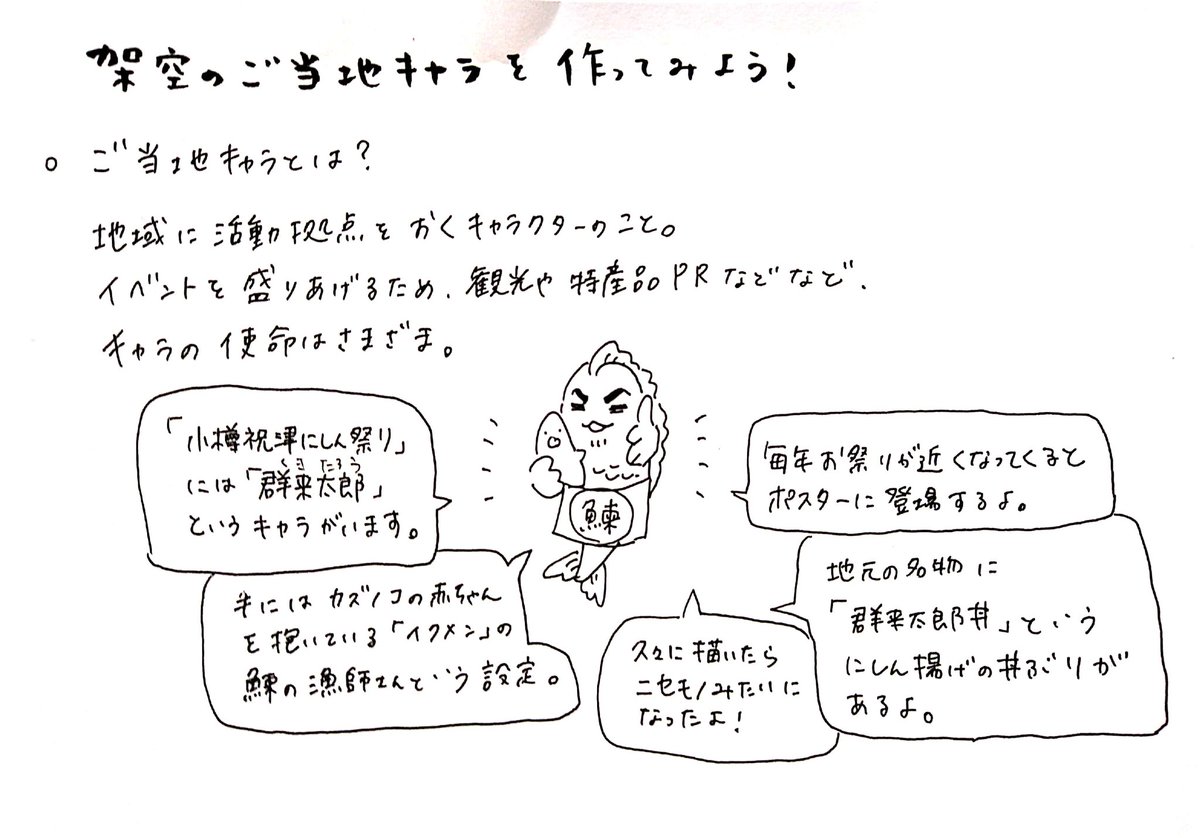 架空のご当地キャラを作ってみよう!
○ ご当地キャラとは?
地域に活動拠点をおくキャラクターのこと。
イベントを盛りあげるため、観光や特産品PRなどなど、
キャラの使命はさまざま。
「小樽祝津にしん祭り」
には「群来太郎」
くき たろう
というキャラがいます。
手にはカズノコの赤ちゃん
を抱いている「イクメン」の
鰊の漁師さんという設定。
鰊
毎年お祭りが近くなってくると
ポスターに登場するよ。
地元の名物に
「群来太郎丼」という
にしん揚げの丼ぶりが
あるよ。
久々に描いたら
ニセモノみたいに
なったよ!